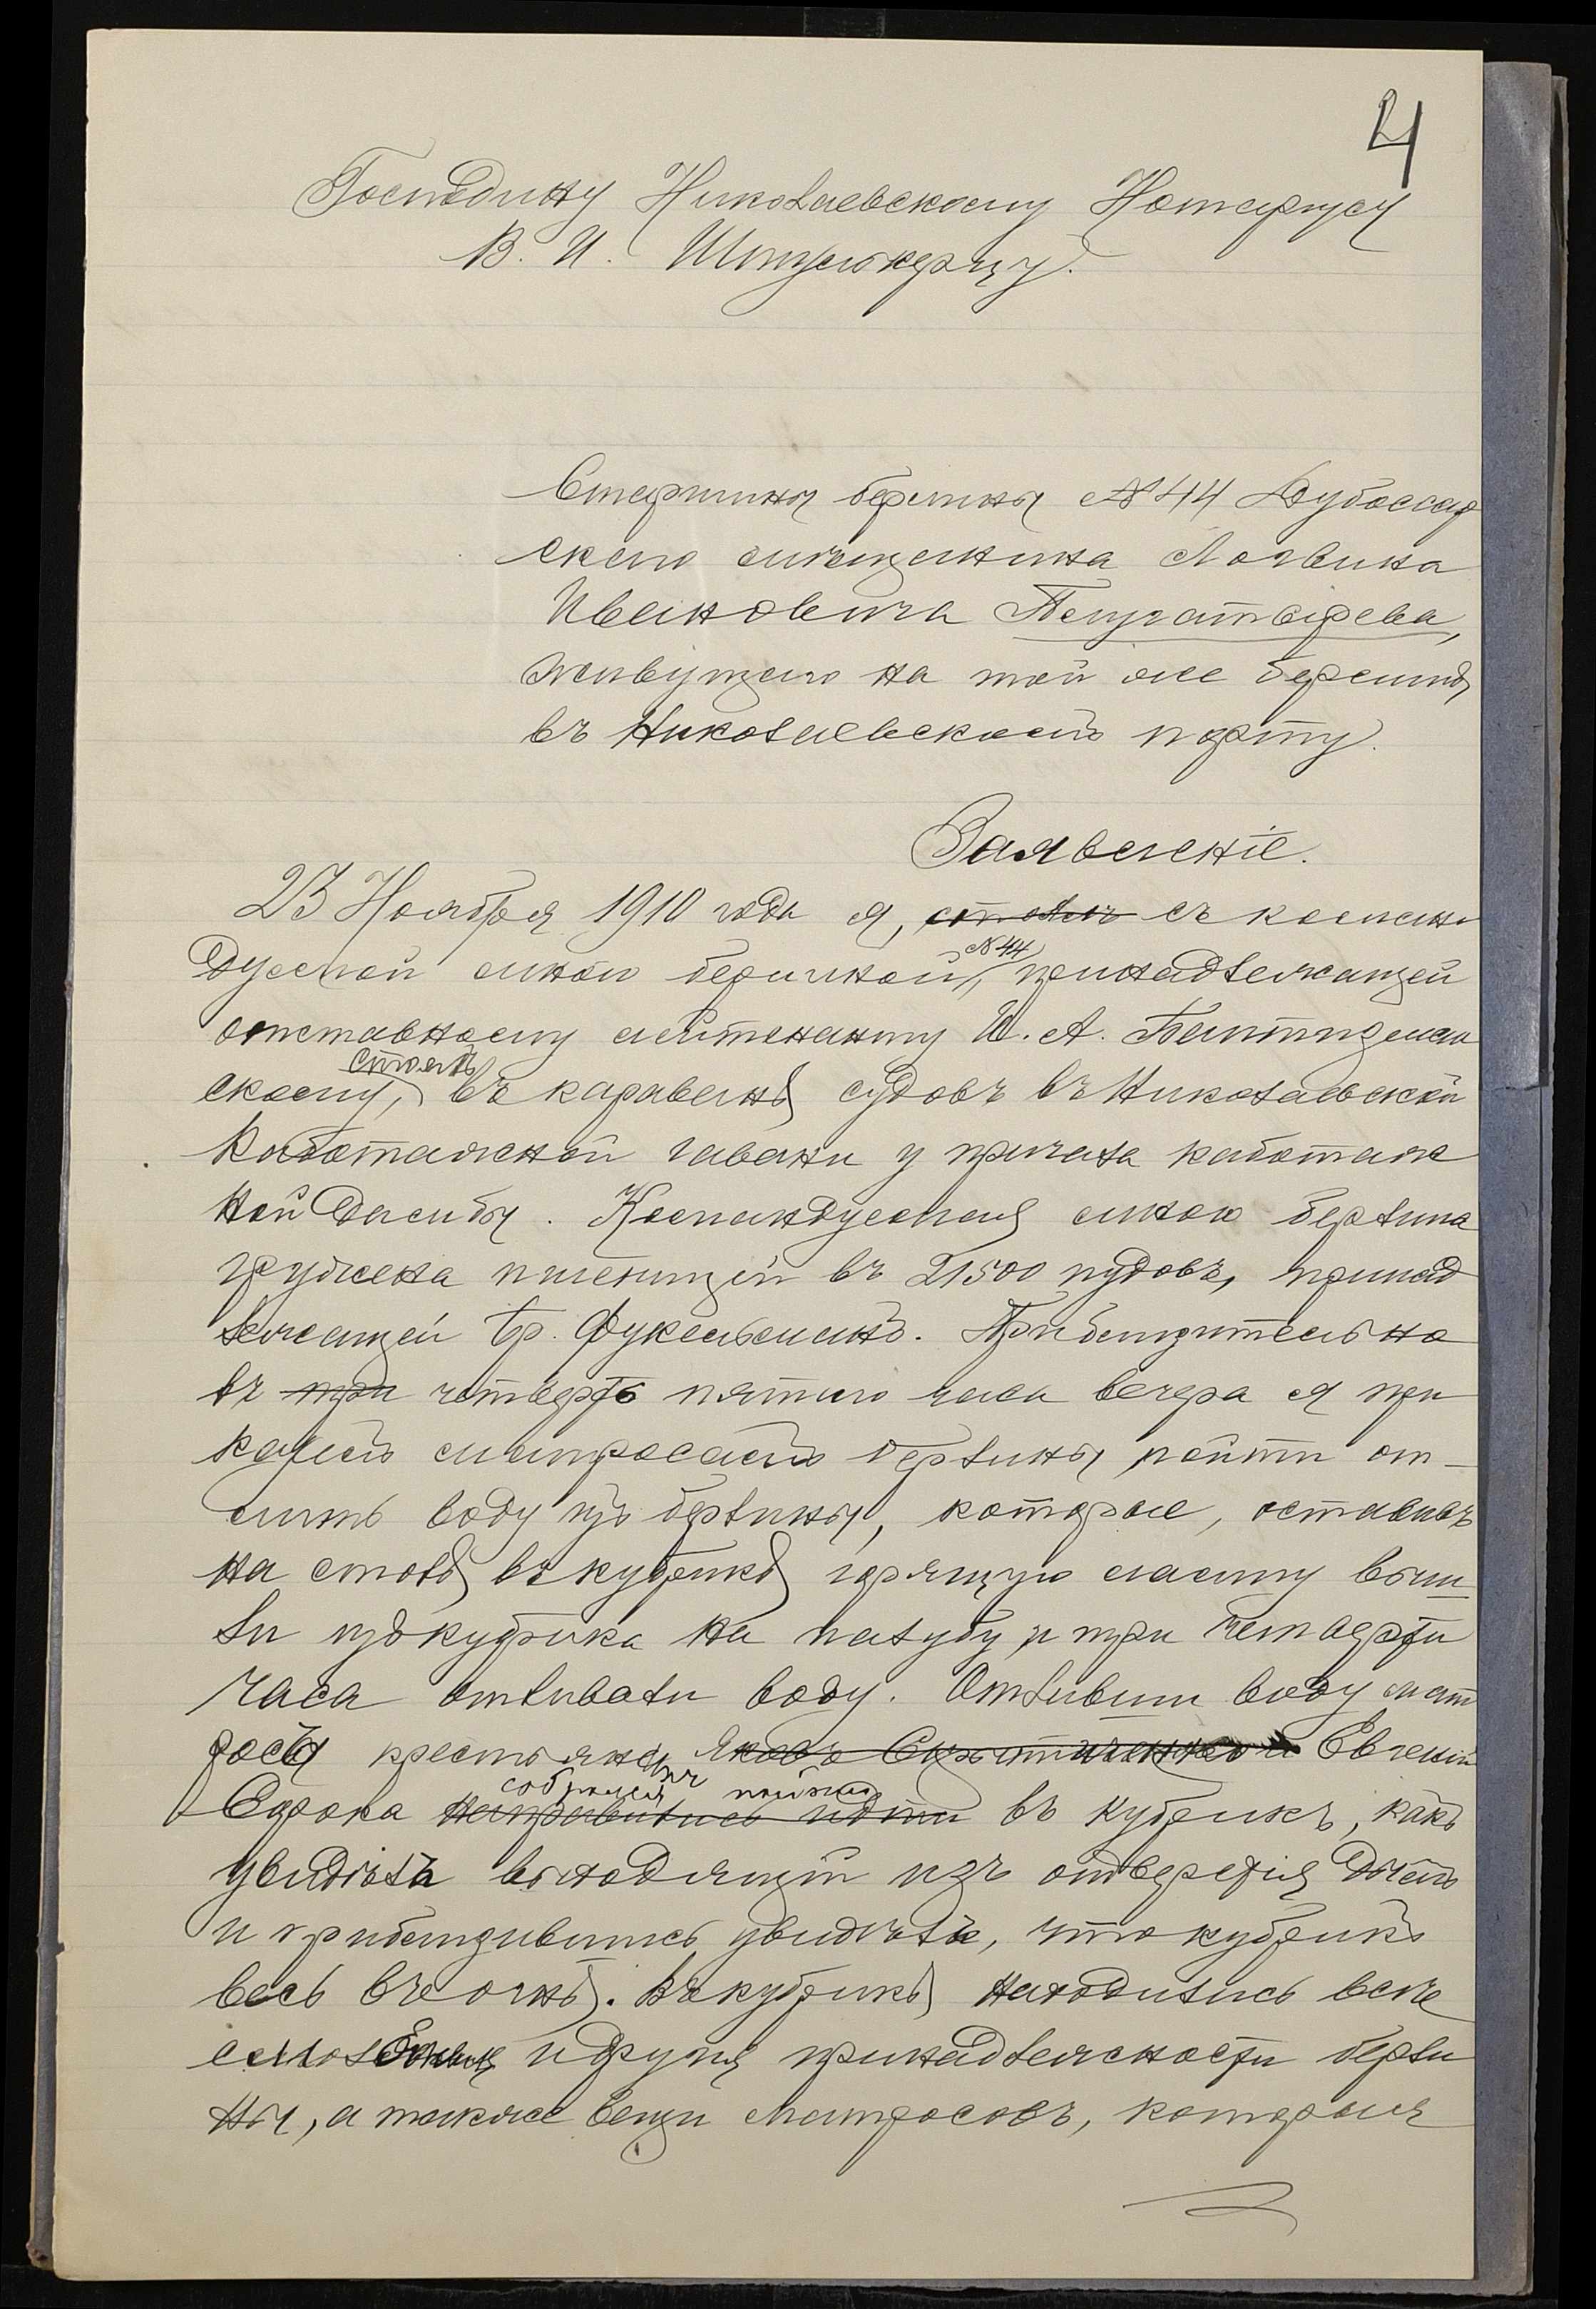 4
Господину Николаевскому Нотариусу
В. И.
Старшины берлины № 44 Дубоссар
скаго мѣщанина Логвина
Ивановича
живущаго на той же берлинѣ
въ Николаевскомъ порту.
Заявленіе.
23 Ноября 1910 года я, стоялъ съ коман
дуемой мною берлиной № 44, принадлежащей
отставному лейтенанту И. А.
скому, стоялъ въ караванѣ судовъ въ Николаевской
Каботажной гавани у причала каботаж
ной дамбы. Командуемая мною берлина
гружена пшеницей въ 21500 пудовъ, принад
лежащей бр. Фукельманъ. Приблизительно
въ три четверть пятаго часа вечера я при
казалъ матросамъ берлины пойти от-
лить воду изъ берлины, которые, оставивъ
на столѣ въ кубрикѣ горящую лампу выш
ли изъ кубрика на палубу и три четверти
часа отливали воду. Отливши воду мат
росъ крестьянинъ Яковъ и Евгеній
собрался пойти направились идти въ кубрикъ, какъ
увидѣлъ выходящій изъ отверстія дымъ
и приблизившись увидѣлъ, что кубрикъ
весь въ огнѣ. Въ кубрикѣ находились все
и другія принадлежности берли
ны, а также вещи матросовъ, которыя